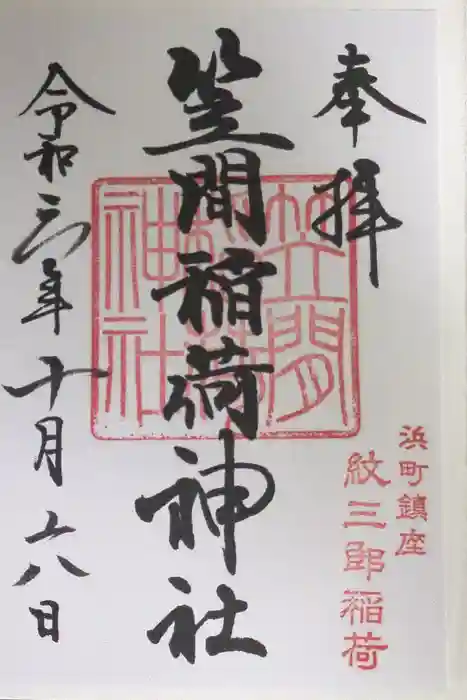 奉拝
浜町鎮座
紋三郎稲荷
笠間稲荷神社
笠間
稲荷
神社
令和三年十月六日